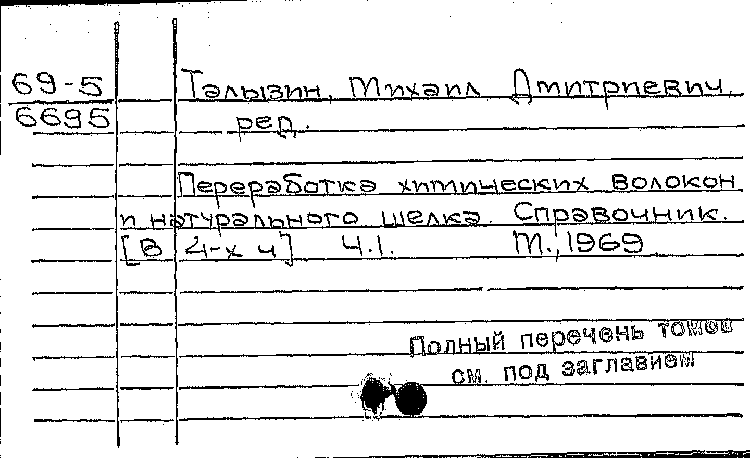 69-5 Талызин, Михаил Дмитриевич,
6695 ред.
Переработка химических волокон
и натурального шелка. Справочник.
[В 4-х ч] Ч.1. М., 1969
Полный перечень томов
см. под заглавием